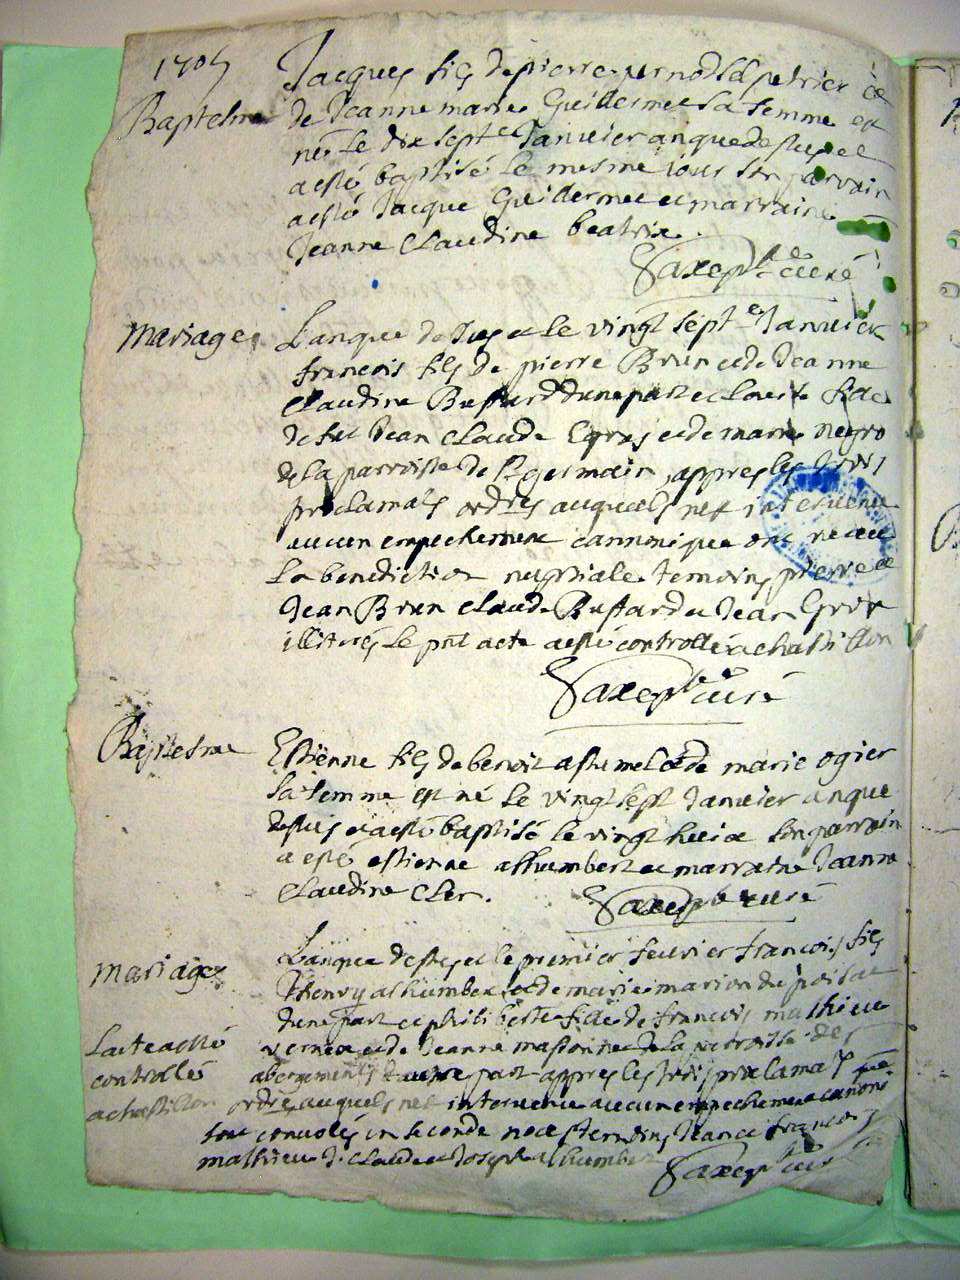 1705
Baptesme
Jacques fils de pierre pernod et
de Jeanne marie Guillermet sa femme est
né le dix sept Janvier an que dessus et
a esté baptisé le mesme jour son parrain
a esté Jacque Guillermet et marraine
Jeanne Claudine beatrix.
Saxe curé
Mariage
L'an que dessus et le vingt sept Janvier
francois fils de pierre Brun et de Jeanne
Claudine Buffard d'une part et Louise fille
de feu Jean Claude Gros et de marie negro
de la parroisse de St germain, appres les trois
proclamats ordres auquels n'est intervenu
aucun empechement cannonique ont receu
la benediction nuptiale temoins pierre et
Jean Brun Claude Buffard et Jean Gros
illiterés le pnt acte a esté controllé a chastillon
Saxe curé
Baptesme
Estienne fils de benoit et de marie ogier
sa femme est né le vingt sept Janvier an que
dessus et a esté baptisé le vingt huit son parrain
a esté estienne alhumbert et marraine Jeanne
Claudine Cler.
Saxe curé
Mariage
L'an que dessus et le premier fevrier francois fils
Thenry alhumbert et de marie marion du poisat
d'une part et philiberte fille de francois mathieu
vernex et de Jeanne de la parroisse des
abergements d'autre part appres les trois proclamats
ordres auquels n'est intervenu aucun empechement canoni
sont convolés en seconde noces temoins Jean et francois
mathieu Claude et Joseph alhumbert
Saxe curé
L'acte a esté
controllé
a chastillon